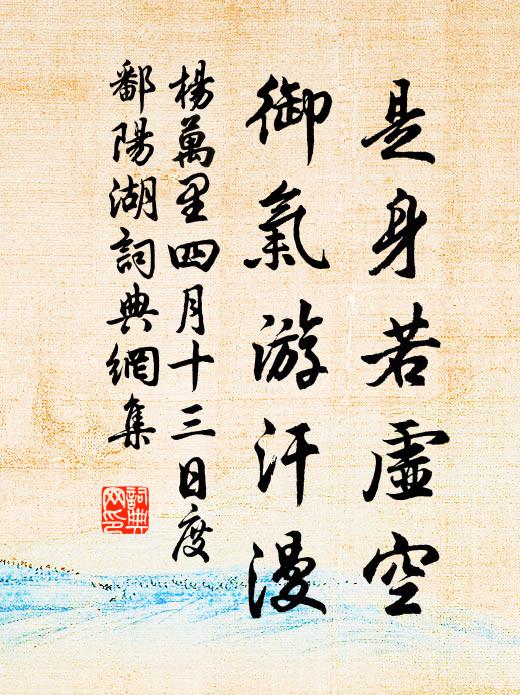 是身若虛空
御氣游汗漫
楊萬里四月十三日度
鄱陽湖詞典網集
詞典
网印